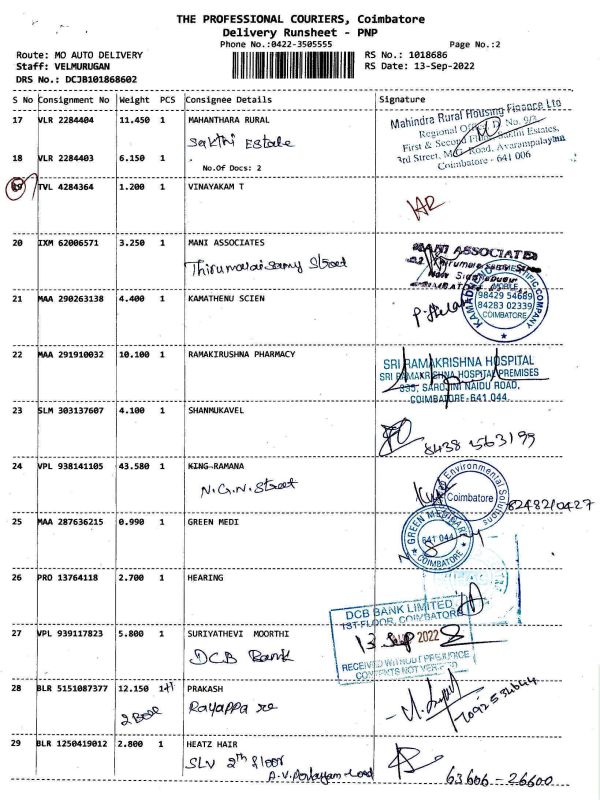 THE PROFESSIONAL COURIERS, Coimbatore
Delivery Runsheet - PNP
Phone No.:0422-3505555
Page No.:2
Route: MO AUTO DELIVERY
RS No.: 1018686
Staff: VELMURUGAN
RS Date: 13-Sep-2022
DRS No.: DCJB101868602
S No Consignment No Weight PCS Consignee Details Signature
17 VLR 2284404 11.450 1 MAHANTHARA RURAL
Sakthi Estate
Mahindra Rural Housing Finance Ltd
Regional Office D. No. 9/3,
First & Second Floor, Sakthi Estates,
3rd Street, M.G. Road, Avarampalayam
Coimbatore - 641 006
18 VLR 2284403 6.150 1 .
No.Of Docs: 2
19 TVL 4284364 1.200 1 VINAYAKAM T
20 IXM 62006571 3.250 1 MANI ASSOCIATES
Thirumalaisamy Street
MANI ASSOCIATES
21 MAA 290263138 4.400 1 KAMATHENU SCIEN
SCIENTIFIC COMPANY
MOBILE
98429 54689
84283 02339
COIMBATORE
22 MAA 291910032 10.100 1 RAMAKIRUSHNA PHARMACY
SRI RAMAKRISHNA HOSPITAL
SRI RAMAKRISHNA HOSPITAL PREMISES
395, SAROJINI NAIDU ROAD,
COIMBATORE-641 044.
23 SLM 303137607 4.100 1 SHANMUKAVEL
8438 563199
24 VPL 938141105 43.580 1 KING RAMANA
N.G.N. Street
Environmental Solutions
Coimbatore
8248210427
25 MAA 287636215 0.990 1 GREEN MEDI
GREEN MEDICARE
641 044
COIMBATORE
26 PRO 13764118 2.700 1 HEARING
DCB BANK LIMITED
1ST FLOOR, COIMBATORE
13 Sep 2022
RECEIVED WITHOUT PREJUDICE
CONTENTS NOT VERIFIED
27 VPL 939117823 5.800 1 SURIYATHEVI MOORTHI
DCB Bank
28 BLR 5151087377 12.150 1 PRAKASH
2 Box
Rayappa
29 BLR 1250419012 2.800 1 HEATZ HAIR
SLV 2th floor
63606-26600